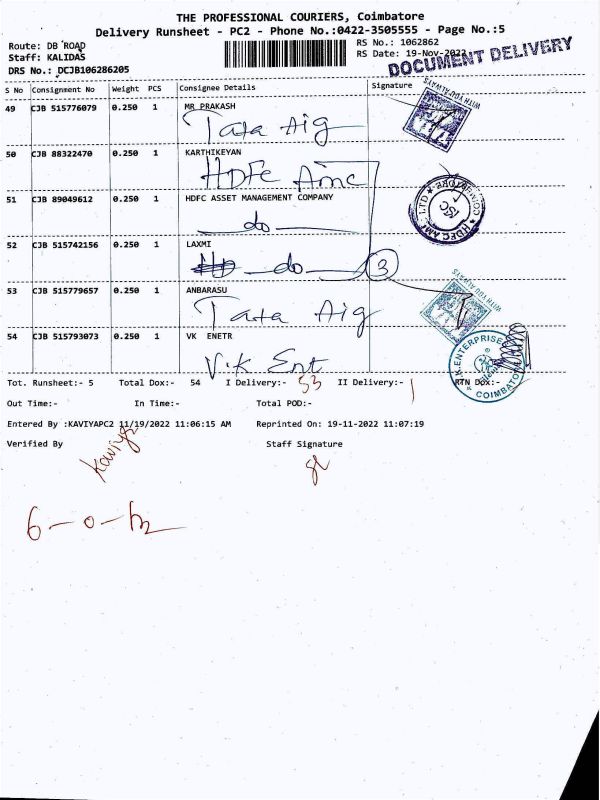 THE PROFESSIONAL COURIERS, Coimbatore
Delivery Runsheet - PC2 - Phone No.:0422-3505555 - Page No.:5
Route: DB ROAD
RS No.: 1062862
Staff: KALIDAS
RS Date: 19-Nov-2022
DRS No.: DCJB106286205
DOCUMENT DELIVERY
S No Consignment No Weight PCS Consignee Details Signature
49 CJB 515776079 0.250 1 MR PRAKASH
Tata Aig
WITH YOU ALWAYS
50 CJB 88322470 0.250 1 KARTHIKEYAN
HDFC Amc
51 CJB 89049612 0.250 1 HDFC ASSET MANAGEMENT COMPANY
do
HDFC AMC LTD ★ COIMBATORE ★
ISC
52 CJB 515742156 0.250 1 LAXMI
do
3
53 CJB 515779657 0.250 1 ANBARASU
Tata Aig
WITH YOU ALWAYS
54 CJB 515793073 0.250 1 VK ENETR
V.K Ent
V.K.ENTERPRISE
COIMBATO
Tot. Runsheet:- 5 Total Dox:- 54 I Delivery:- 53 II Delivery:- 1 RTN Dox:-
Out Time:- In Time:- Total POD:-
Entered By :KAVIYAPC2 11/19/2022 11:06:15 AM Reprinted On: 19-11-2022 11:07:19
Verified By Staff Signature
Kaviya